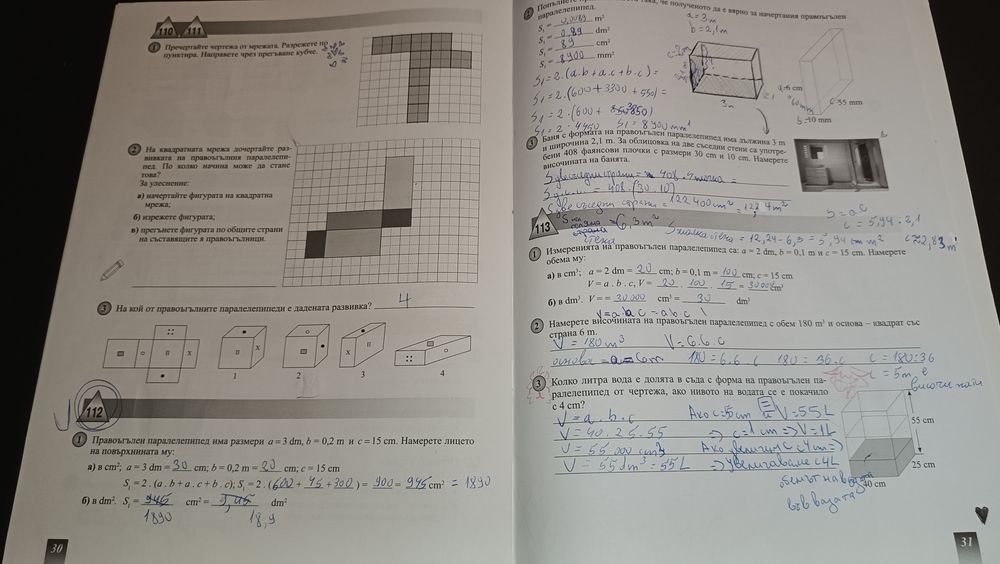 110 111
1 Пречертайте чертежа от мрежата. Разрежете по
пунктира. Направете чрез прегъване кубче.
2 На квадратната мрежа дочертайте раз-
вивката на правоъгълния паралелепи-
пед. По колко начина може да стане
това?
За улеснение:
а) начертайте фигурата на квадратна
мрежа;
б) изрежете фигурата;
в) прегънете фигурата по общите страни
на съставящите я правоъгълници.
3 На кой от правоъгълните паралелепипеди е дадената развивка? 4
x
x
x
x
1
2
3
4
V 112
1 Правоъгълен паралелепипед има размери a = 3 dm, b = 0,2 m и c = 15 cm. Намерете лицето
на повърхнината му:
а) в cm²; a = 3 dm = 30 cm; b = 0,2 m = 20 cm; c = 15 cm
S₁ = 2 . (a . b + a . c + b . c); S₁ = 2 . (600 + 75 + 300) = 900 = 945 cm² = 1890
б) в dm². S₁ = 945 cm² = 9,45 dm²
1890 18,9
30
2 че полученото да е вярно за начертания правоъгълен
паралелепипед.
S₁ = 0,0089 m²
S₁ = 0,89 dm²
S₁ = 89 cm²
S₁ = 8900 mm²
a = 3m
b = 2,1m
3m
a=6 cm
=60mm
c=55 mm
b=10 mm
S₁ = 2.(a.b + a.c + b.c) =
S₁ = 2.(600 + 3300 + 550) =
S₁ = 2.4450 S₁ = 8900 mm²
3 Баня с формата на правоъгълен паралелепипед има дължина 3 m
и широчина 2,1 m. За облицовка на две съседни стени са употре-
бени 408 фаянсови плочки с размери 30 cm и 10 cm. Намерете
височината на банята.
= 408.(30.10)
= 122 400 cm² = 12,24 m²
113
= 6,3 m²
S малка стена = 12,24 - 6,3 = 5,94 m²
S = a.c
c = 5,94 : 2,1
c ≈ 2,83 m
1 Измеренията на правоъгълен паралелепипед са: a = 2 dm, b = 0,1 m и c = 15 cm. Намерете
обема му:
а) в cm³; a = 2 dm = 20 cm; b = 0,1 m = 100 cm; c = 15 cm
V = a . b . c, V = 20 . 100 . 15 = 30000 cm³
б) в dm³. V = 30 000 cm³ = 30 dm³
2 Намерете височината на правоъгълен паралелепипед с обем 180 m³ и основа – квадрат със
страна 6 m.
V = 180 m³ V = 6.6.c
основа = a = 6m 180 = 6.6.c 180 = 36.c c = 180:36
c = 5m
3 Колко литра вода е долята в съда с форма на правоъгълен па-
ралелепипед от чертежа, ако нивото на водата се е покачило
с 4 cm?
V = a.b.c Ако c = 55 cm V = 55L
V = 40.25.55 => c = 1 cm => V = 1L
V = 55 000 cm³ Ако увеличим c с 4 cm =>
V = 55 dm³ = 55L => увеличаваме с 4L
обемът на водата
височина
55 cm
25 cm
40 cm
31